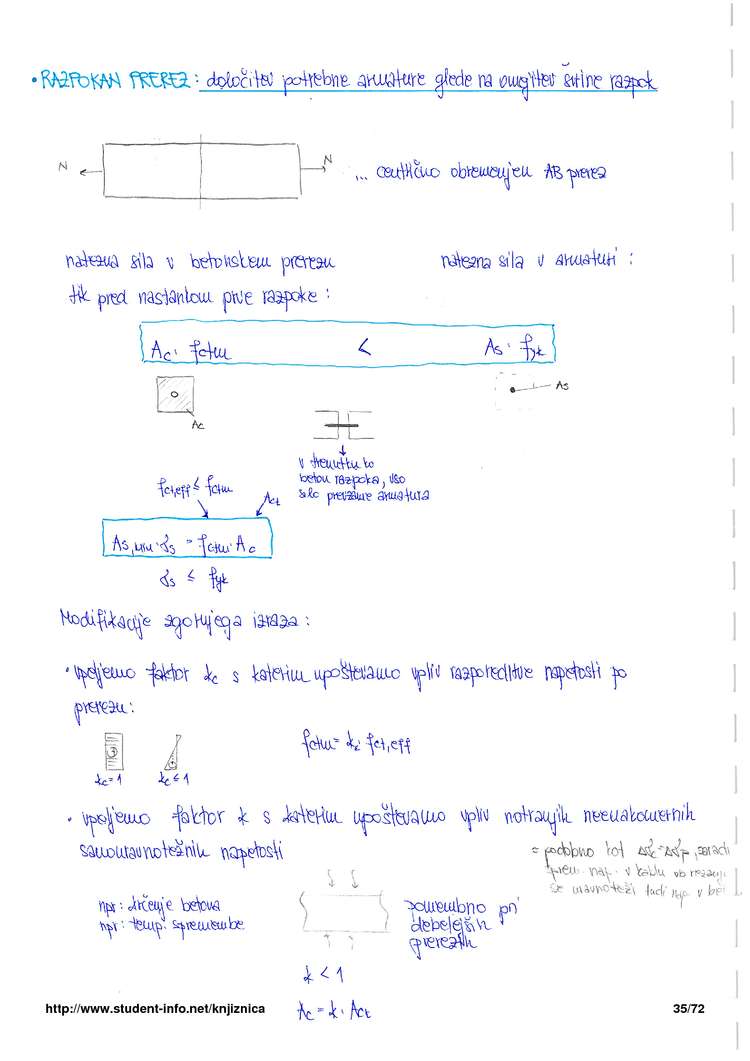 • RAZPOKAN PREREZ : določitev potrebne armature glede na omejitev širine razpok
N N ... centrično obremenjen AB prerez
natezna sila v betonskem prerezu natezna sila v armaturi :
tik pred nastankom prve razpoke :
Ac · fctm < As · fyk
As
Ac
v trenutku ko
beton razpoka, vso
silo prevzame armatura
fct,eff ≤ fctm
Act
As,min · σs = fctm · Ac
σs ≤ fyk
Modifikacije zgornjega izraza :
• vpeljemo faktor kc s katerim upoštevamo vpliv razporeditve napetosti po
prerezu :
fctm = kc · fct,eff
kc = 1 kc ≤ 1
• vpeljemo faktor k s katerim upoštevamo vpliv notranjih neenakomernih
samouravnotežnih napetosti
= podobno kot zaradi
v kablu ob
se uravnoteži tudi v
npr : krčenje betona
npr : temp. spremembe
pomembno pri
debelejših
prerezih
k < 1
Ac = k · Act
http://www.student-info.net/knjiznica 35/72